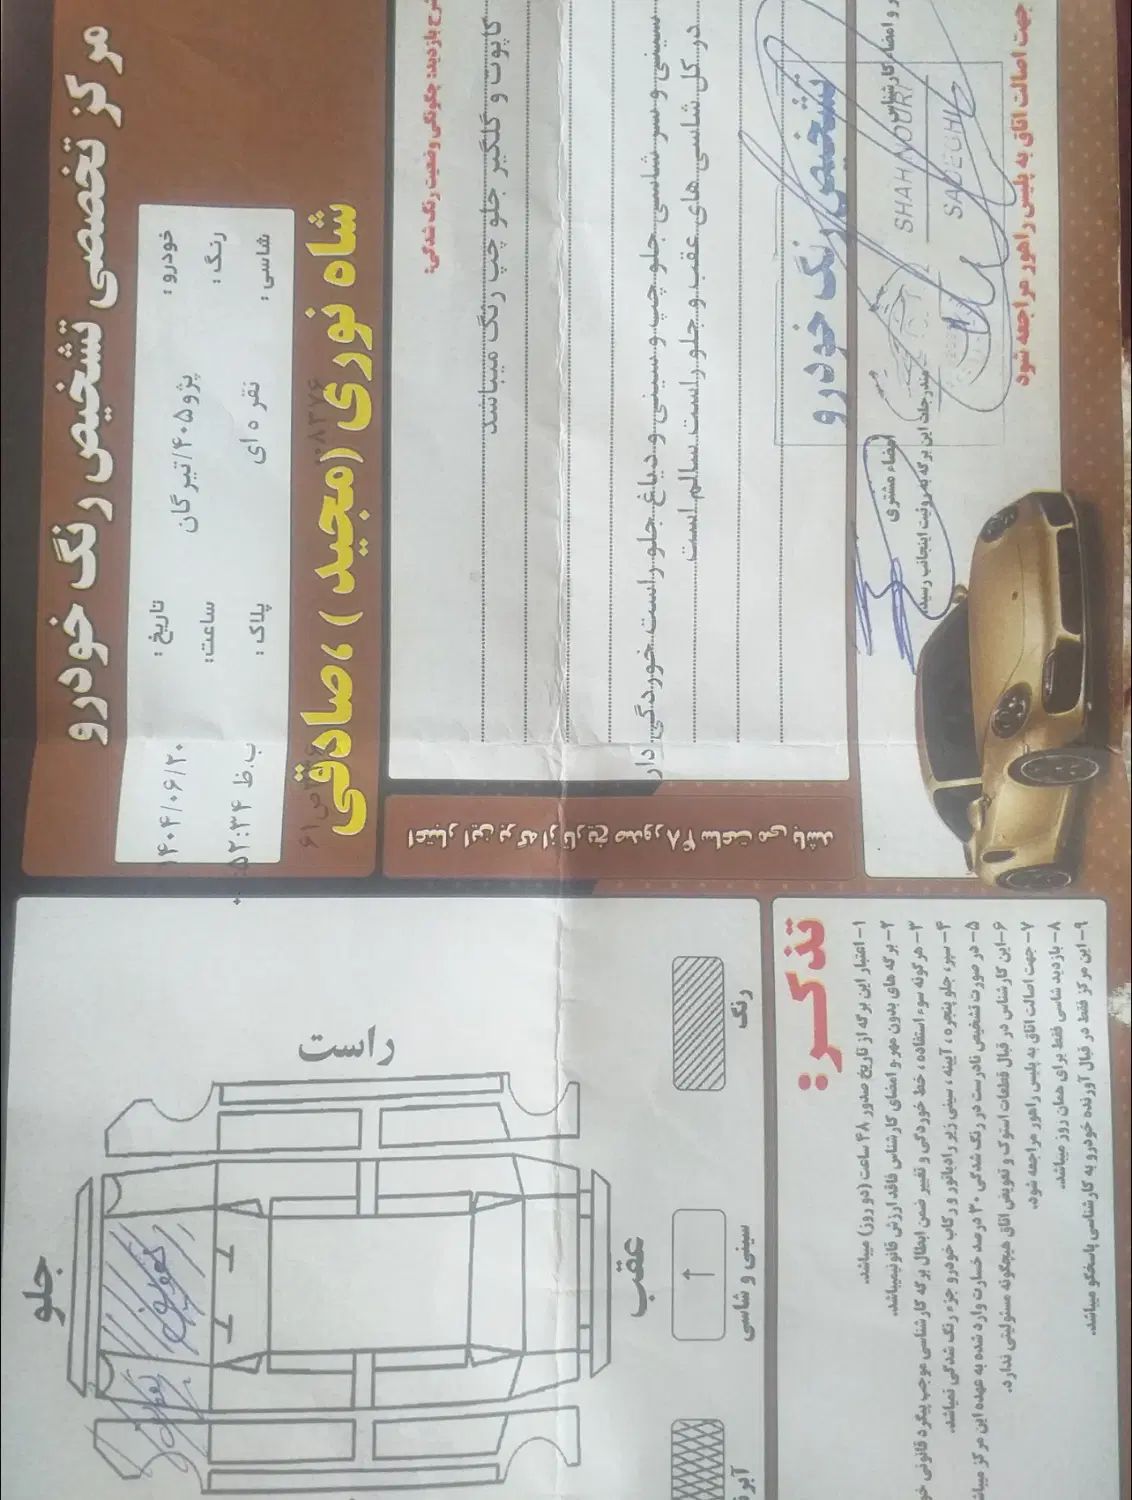 مرکز تخصصی تشخیص رنگ خودرو
خودرو : پژو۴۰۵/تیرگان
تاریخ : ۱۴۰۴/۰۶/۲۰
رنگ : نقره ای
ساعت: ب.ظ
شاسی :
پلاک :
شاه نوری (مجید) ،صادقی
شرح بازدید: چگونگی وضعیت رنگ شدگی:
کاپوت و گلگیر جلو چپ رنگ میباشد
سینی و سر شاسی جلو چپ و سینی و دیاغ جلو راست خوردگی دار
در کل شاسی های عقب و جلو راست سالم است
تشخیص رنگ خودرو
و امضاء کارشناس
SHAHNOURI
SADEGHI
امضاء مشتری
مندرجات این برگه به رویت اینجانب رسید.
جهت اصالت اتاق به پلیس راهور مراجعه شود
اعتبار این برگه از تاریخ صدور ۴۸ ساعت می باشد
راست
جلو
تعویض
عقب
رنگ
سینی و شاسی
تذکر:
۱- اعتبار این برگه از تاریخ صدور ۴۸ ساعت (دو روز) میباشد.
۲- برگه های بدون مهر و امضای کارشناس فاقد ارزش قانونیمیباشد.
۳- هرگونه سوء استفاده ، خط خوردگی و تغییر ضمن ابطال برگه کارشناسی موجب پیگرد قانونی
۴- سپر، جلو پنجره ، آیینه ، سینی زیر رادیاتور و رکاب خودرو جزء رنگ شدگی نمیباشد.
۵- در صورت تشخیص نادرست در رنگ شدگی ۳۰ درصد خسارت وارد شده به عهده این مرکز
۶- این کارشناس در قبال قطعات استوک و تعویض اتاق هیچگونه مسئولیتی ندارد.
۷- جهت اصالت اتاق به پلیس راهور مراجعه شود.
۸- بازدید شاسی فقط برای همان روز میباشد.
۹- این مرکز فقط در قبال آورنده خودرو به کارشناسی پاسخگو میباشد.